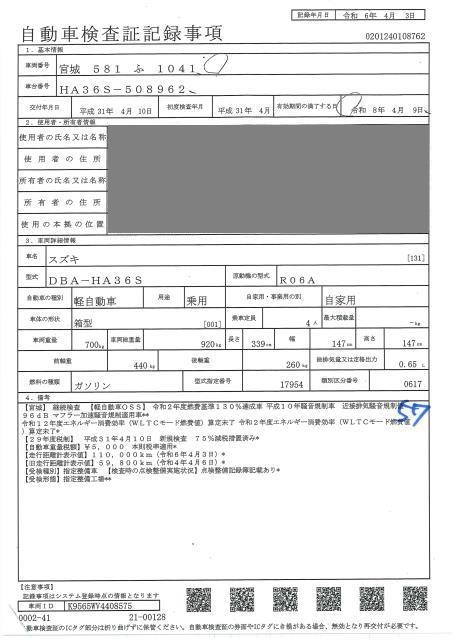 記録年月日 令和 6年 4月 3日
自動車検査証記録事項
0201240108762
1．基本情報
車両番号 宮城 581 ふ 1041
車台番号 HA36S-508962
交付年月日 平成 31年 4月 10日 初度検査年月 平成 31年 4月 有効期間の満了する日 令和 8年 4月 9日
2．使用者・所有者情報
使用者の氏名又は名称
使用者の住所
所有者の氏名又は名称
所有者の住所
使用の本拠の位置
3．車両詳細情報
車名 スズキ [131]
型式 DBA-HA36S 原動機の型式 R06A
自動車の種別 軽自動車 用途 乗用 自家用・事業用の別 自家用
車体の形状 箱型 [001] 乗車定員 4人 最大積載量 -kg
車両重量 700kg 車両総重量 920kg 長さ 339cm 幅 147cm 高さ 147cm
前軸重 440kg 後軸重 260kg 総排気量又は定格出力 0.65 L
燃料の種類 ガソリン 型式指定番号 17954 類別区分番号 0617
4．備考
【宮城】 継続検査 【軽自動車OSS】 令和2年度燃費基準130％達成車 平成10年騒音規制車 近接排気騒音規制
964dB マフラー加速騒音規制適用車**
令和12年度エネルギー消費効率（WLTCモード燃費値）算定未了 令和2年度エネルギー消費効率（WLTCモード燃費値
）算定未了*
【29年度税制】 平成31年4月10日 新規検査 75％減税措置済み*
【自動車重量税額】￥5,000 本則税率適用*
【走行距離計表示値】110,000km（令和6年4月3日）*
【旧走行距離計表示値】59,800km（令和4年4月6日）*
【受検種別】指定整備車 【検査時の点検整備実施状況】点検整備記録簿記載あり*
【受検形態】指定整備工場**
57
【注意事項】
記録事項はシステム登録時点の情報となります
車両ID K9565WV4408575
0002-41 21-00128
自動車検査証のICタグ部分は折り曲げずに保管ください。自動車検査証の券面やICタグに毀損がある場合、無効となり再交付が必要です。